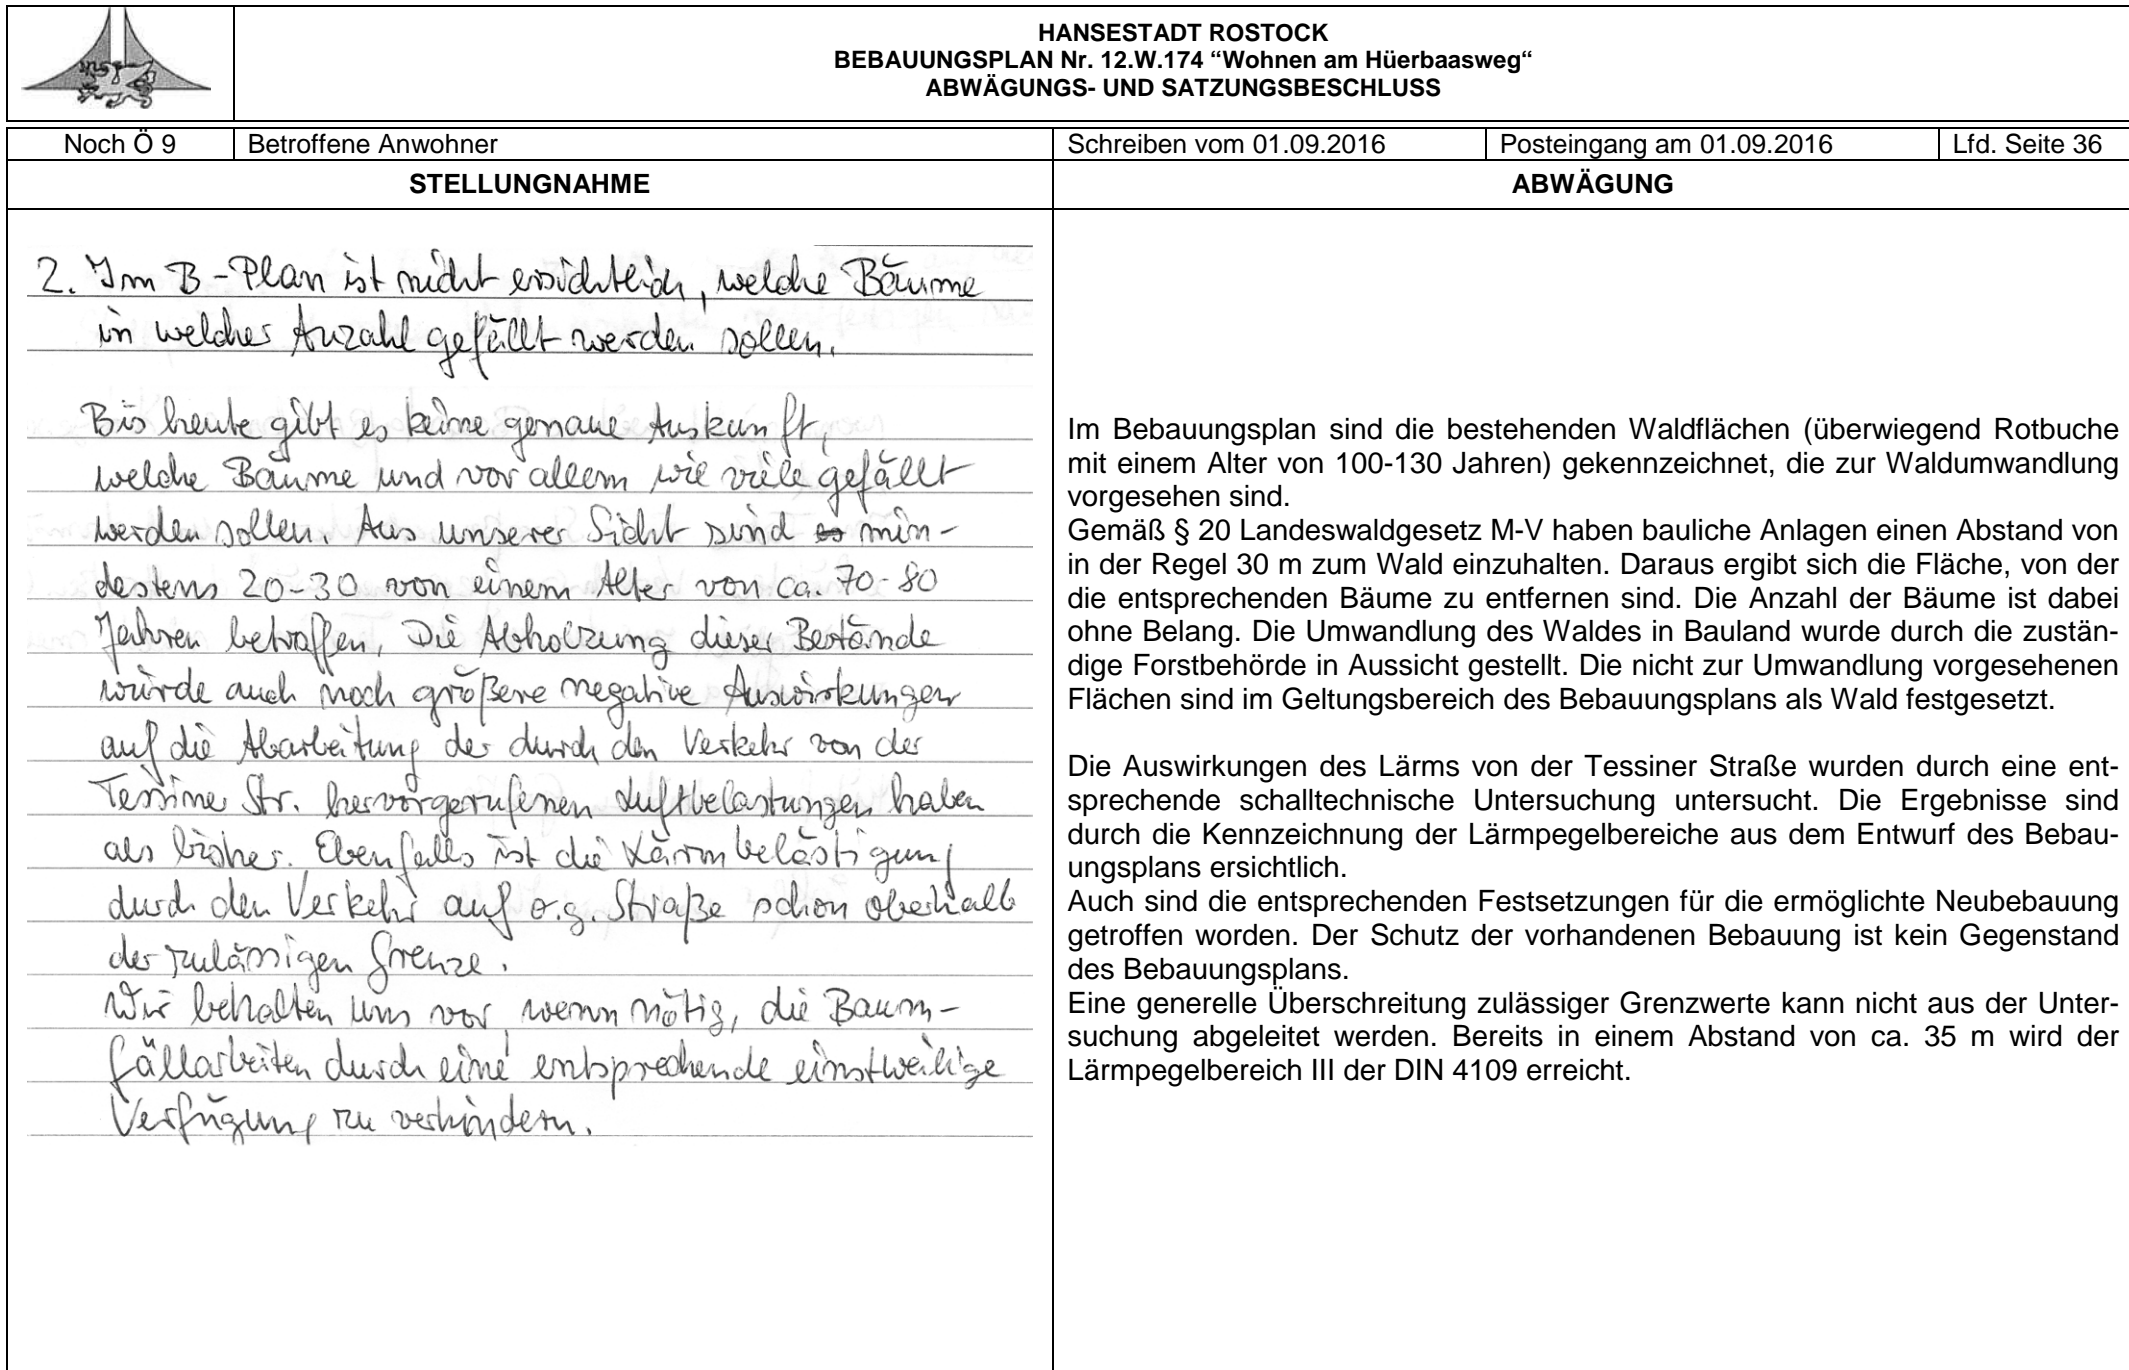 HANSESTADT ROSTOCK
BEBAUUNGSPLAN Nr. 12.W.174 “Wohnen am Hüerbaasweg“
ABWÄGUNGS- UND SATZUNGSBESCHLUSS
Noch Ö 9 Betroffene Anwohner Schreiben vom 01.09.2016 Posteingang am 01.09.2016 Lfd. Seite 36
STELLUNGNAHME
2. Im B-Plan ist nicht ersichtlich, welche Bäume
in welcher Anzahl gefällt werden sollen.
Bis heute gibt es keine genaue Auskunft,
welche Bäume und vor allem wie viele gefällt
werden sollen. Aus unserer Sicht sind es min-
destens 20-30 von einem Alter von ca. 70-80
Jahren betroffen. Die Abholzung dieser Bestände
würde auch noch größere negative Auswirkungen
auf die Abarbeitung der durch den Verkehr von der
Tessiner Str. hervorgerufenen Luftbelastungen haben
als bisher. Ebenfalls ist die Lärmbelästigung
durch den Verkehr auf o.g. Straße schon oberhalb
der zulässigen Grenze.
Wir behalten uns vor, wenn nötig, die Baum-
fällarbeiten durch eine entsprechende einstweilige
Verfügung zu verhindern.
ABWÄGUNG
Im Bebauungsplan sind die bestehenden Waldflächen (überwiegend Rotbuche
mit einem Alter von 100-130 Jahren) gekennzeichnet, die zur Waldumwandlung
vorgesehen sind.
Gemäß § 20 Landeswaldgesetz M-V haben bauliche Anlagen einen Abstand von
in der Regel 30 m zum Wald einzuhalten. Daraus ergibt sich die Fläche, von der
die entsprechenden Bäume zu entfernen sind. Die Anzahl der Bäume ist dabei
ohne Belang. Die Umwandlung des Waldes in Bauland wurde durch die zustän-
dige Forstbehörde in Aussicht gestellt. Die nicht zur Umwandlung vorgesehenen
Flächen sind im Geltungsbereich des Bebauungsplans als Wald festgesetzt.
Die Auswirkungen des Lärms von der Tessiner Straße wurden durch eine ent-
sprechende schalltechnische Untersuchung untersucht. Die Ergebnisse sind
durch die Kennzeichnung der Lärmpegelbereiche aus dem Entwurf des Bebau-
ungsplans ersichtlich.
Auch sind die entsprechenden Festsetzungen für die ermöglichte Neubebauung
getroffen worden. Der Schutz der vorhandenen Bebauung ist kein Gegenstand
des Bebauungsplans.
Eine generelle Überschreitung zulässiger Grenzwerte kann nicht aus der Unter-
suchung abgeleitet werden. Bereits in einem Abstand von ca. 35 m wird der
Lärmpegelbereich III der DIN 4109 erreicht.